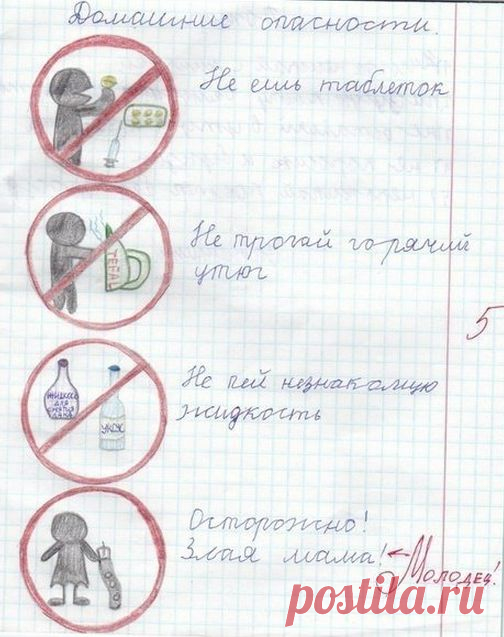 Домашние опасности.
Не ешь таблеток
Не трогай горячий
утюг
ТЕФАЛ
5
Не пей незнакомую
жидкость
ЖИДКОСТЬ
ДЛЯ
СНЯТИЯ
ЛАКА
УКСУС
Осторожно!
Злая мама!
Молодец!
postila.ru